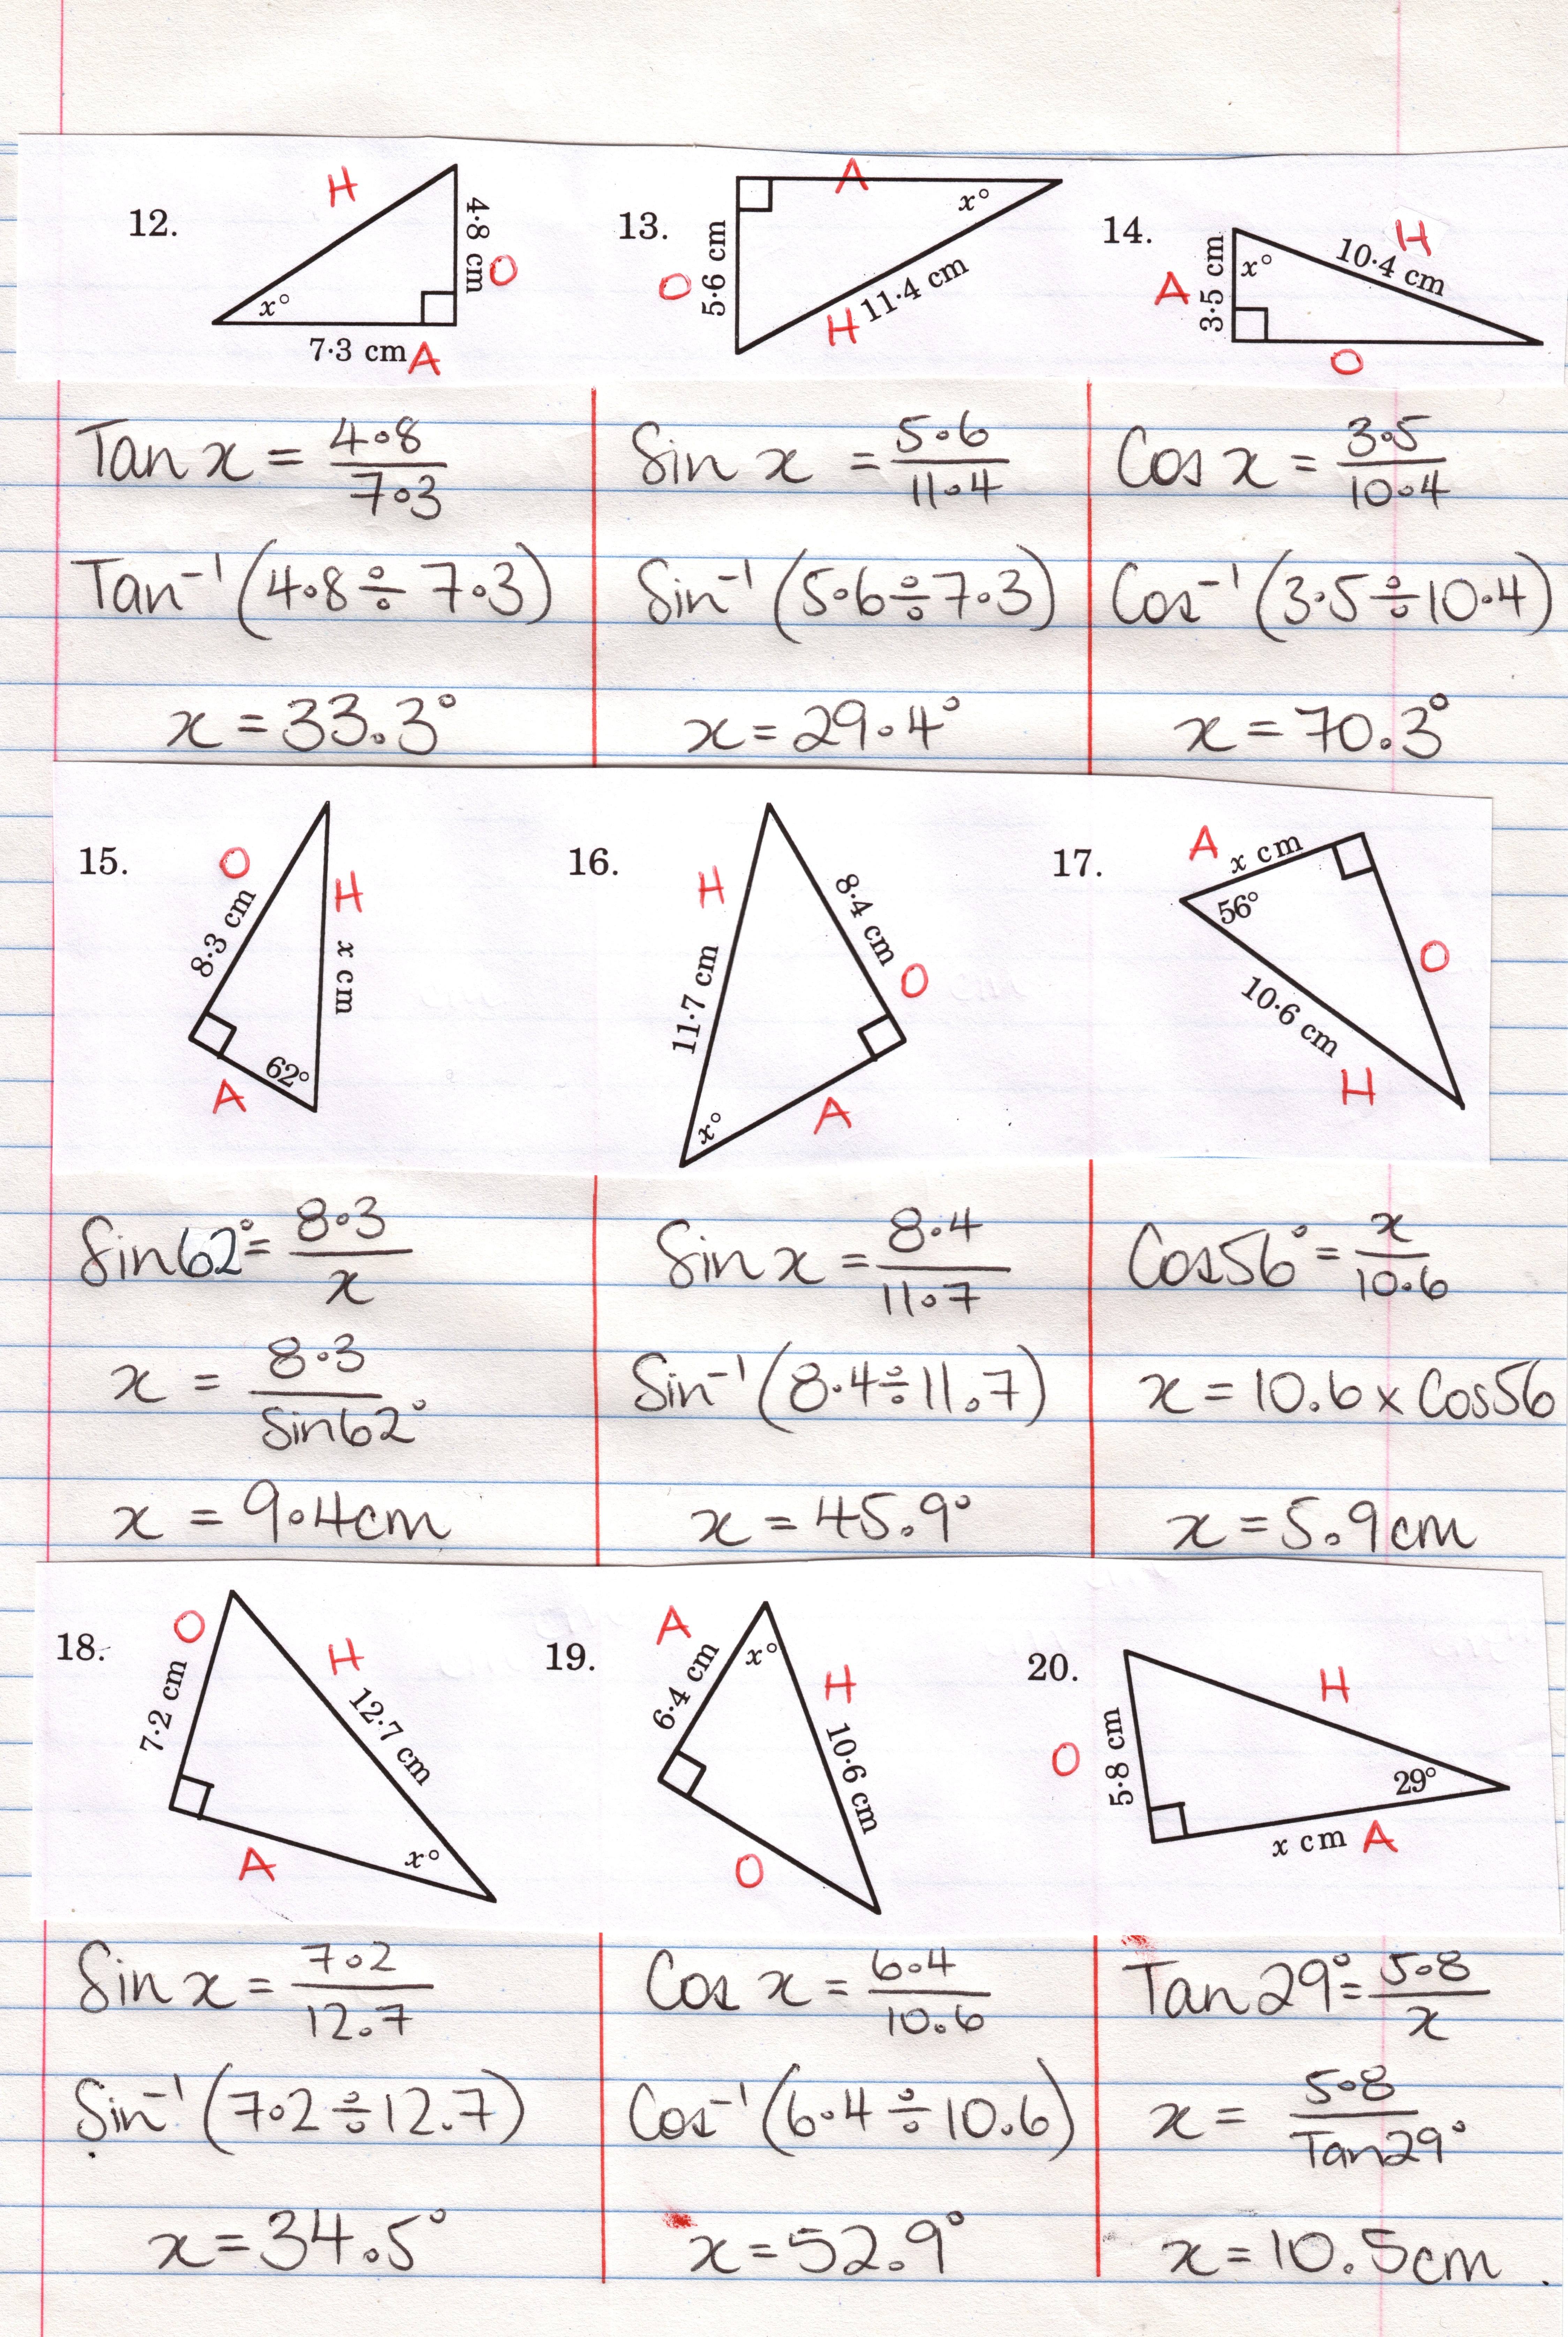 12.
H
4·8 cm
O
x°
7·3 cm A
13.
A
x°
O
5·6 cm
H 11·4 cm
14.
H
10·4 cm
A
3·5 cm
x°
O
Tan x = 4.8/7.3
Tan⁻¹(4.8 ÷ 7.3)
x = 33.3°
Sin x = 5.6/11.4
Sin⁻¹(5.6 ÷ 7.3)
x = 29.4°
Cos x = 3.5/10.4
Cos⁻¹(3.5 ÷ 10.4)
x = 70.3°
15.
O
8·3 cm
H
x cm
62°
A
16.
H
11·7 cm
8·4 cm
O
x°
A
17.
A
x cm
56°
O
10·6 cm
H
Sin 62° = 8.3/x
x = 8.3/Sin 62°
x = 9.4cm
Sin x = 8.4/11.7
Sin⁻¹(8.4 ÷ 11.7)
x = 45.9°
Cos 56° = x/10.6
x = 10.6 x Cos 56
x = 5.9cm
18.
O
7·2 cm
H
12·7 cm
A
x°
19.
A
6·4 cm
x°
H
10·6 cm
O
20.
H
O
5·8 cm
29°
x cm A
Sin x = 7.2/12.7
Sin⁻¹(7.2 ÷ 12.7)
x = 34.5°
Cos x = 6.4/10.6
Cos⁻¹(6.4 ÷ 10.6)
x = 52.9°
Tan 29° = 5.8/x
x = 5.8/Tan 29°
x = 10.5cm.